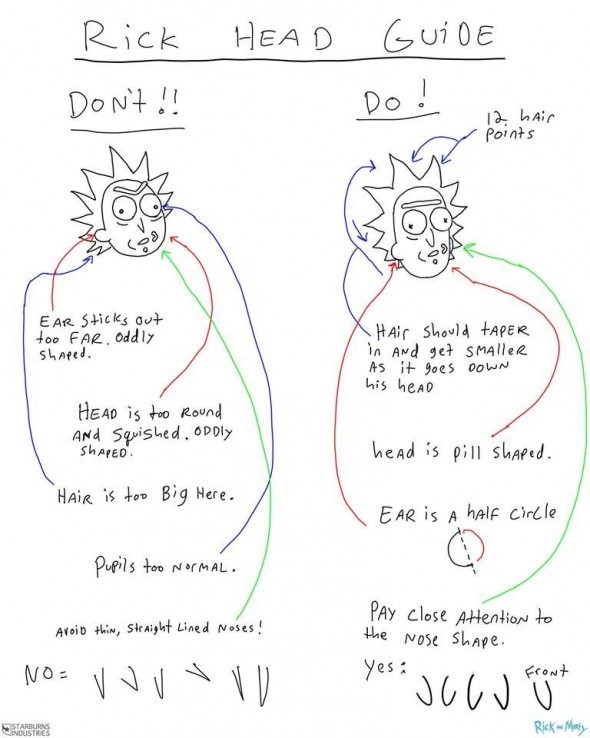 Rick HEAD GUiDE
DON't!!
Do!
12 hAir
Points
EAR Sticks out
too FAR. Oddly
Shaped.
HEAD is too Round
AND Squished. ODDly
SHAPED.
HAIR is too Big Here.
Pupils too NORMAL.
AVOiD thin, Straight Lined Noses!
NO=
HAir Should tAPER
in AND get SMAllER
AS it goes DOWN
his hEAD
head is pill shaped.
EAR is A hAlf CirclE
PAY Close Attention to
the NOSE ShAPE.
Yes:
Front
STARBURNS
INDUSTRIES
Rick and Morty